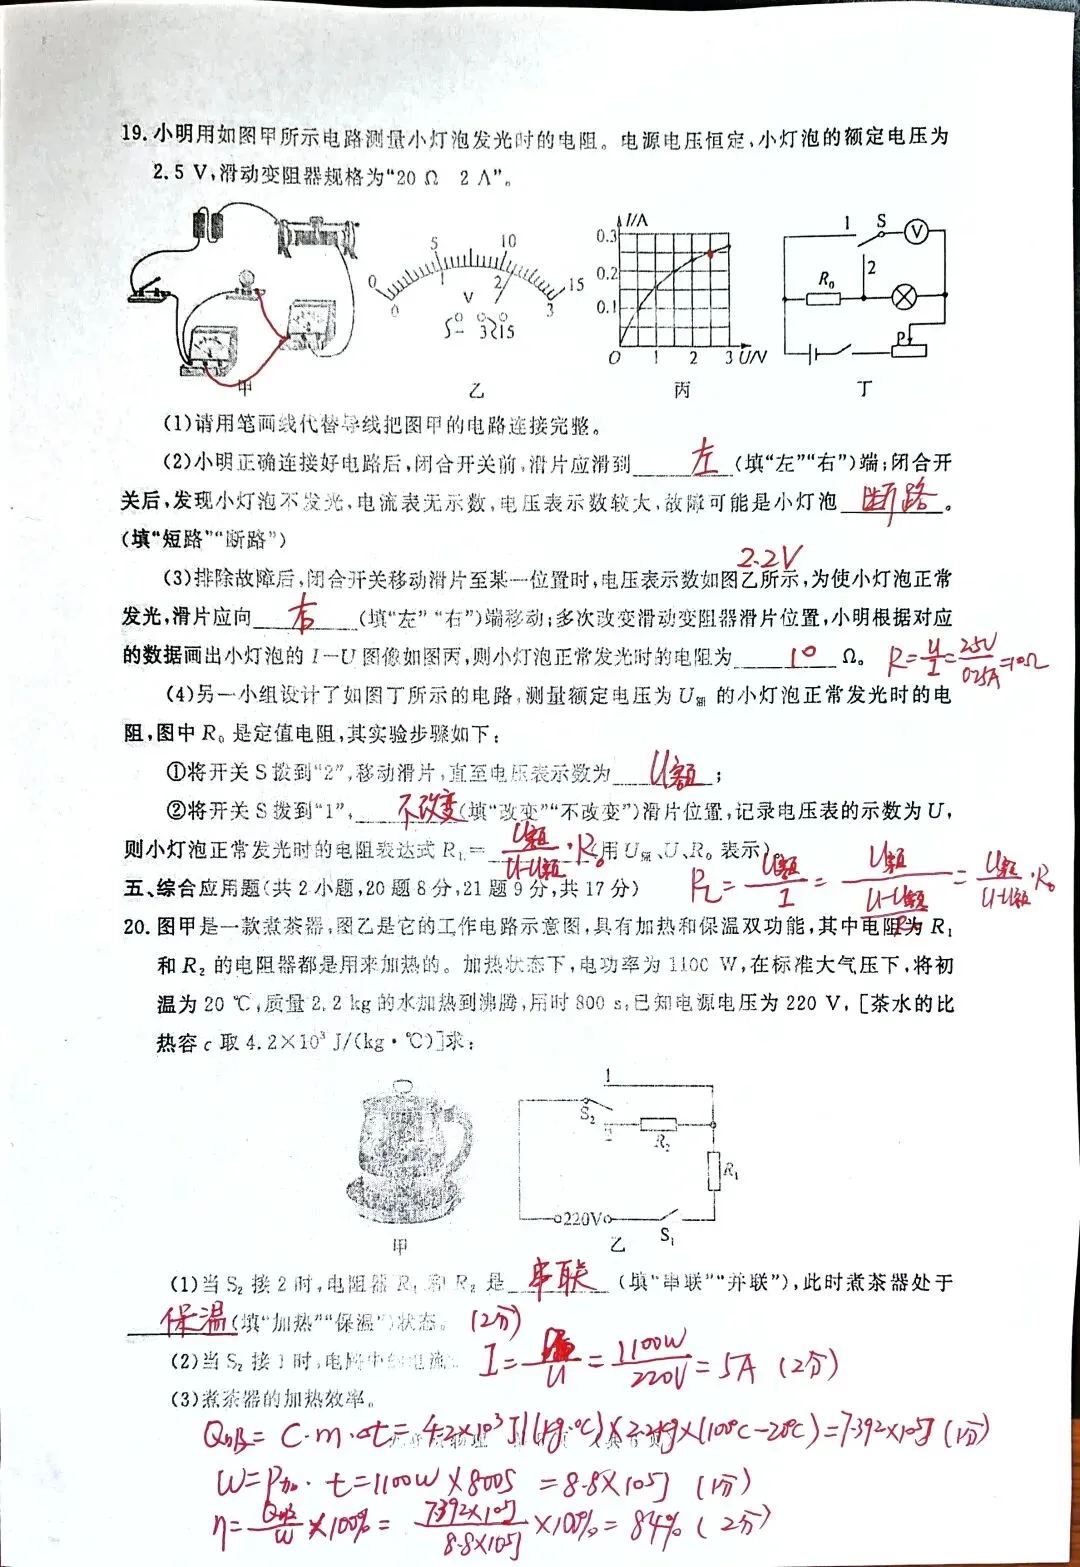 19. 小明用如图甲所示电路测量小灯泡发光时的电阻。电源电压恒定,小灯泡的额定电压为
2.5 V,滑动变阻器规格为“20 Ω 2 A”。
5 10
0 15
1 2
0 3
V
- 3 15
I/A
0.3
0.2
0.1
0 1 2 3 U/V
1 S V
2
R₀
P
甲 乙 丙 丁
(1)请用笔画线代替导线把图甲的电路连接完整。
(2)小明正确连接好电路后,闭合开关前,滑片应滑到 左 (填“左”“右”)端;闭合开
关后,发现小灯泡不发光,电流表无示数,电压表示数较大,故障可能是小灯泡 断路 。
(填“短路”“断路”)
2.2V
(3)排除故障后,闭合开关移动滑片至某一位置时,电压表示数如图乙所示,为使小灯泡正常
发光,滑片应向 右 (填“左”“右”)端移动;多次改变滑动变阻器滑片位置,小明根据对应
的数据画出小灯泡的 I-U 图像如图丙,则小灯泡正常发光时的电阻为 10 Ω。 R=U/I=2.5V/0.25A=10Ω
(4)另一小组设计了如图丁所示的电路,测量额定电压为 U额 的小灯泡正常发光时的电
阻,图中 R₀ 是定值电阻,其实验步骤如下:
①将开关 S 拨到“2”,移动滑片,直至电压表示数为 U额 ;
②将开关 S 拨到“1”, 不改变 (填“改变”“不改变”)滑片位置,记录电压表的示数为 U,
则小灯泡正常发光时的电阻表达式 R_L= U额/(U-U额)·R₀ (用 U额、U、R₀ 表示)。
R_L=U额/I=U额/((U-U额)/R₀)=U额/(U-U额)·R₀
五、综合应用题(共 2 小题,20 题 8 分,21 题 9 分,共 17 分)
20. 图甲是一款煮茶器,图乙是它的工作电路示意图,具有加热和保温双功能,其中电阻为 R₁
和 R₂ 的电阻器都是用来加热的。加热状态下,电功率为 1100 W,在标准大气压下,将初
温为 20 ℃,质量 2.2 kg 的水加热到沸腾,用时 800 s,已知电源电压为 220 V,[茶水的比
热容 c 取 4.2×10³ J/(kg·℃)]求:
1
S₂
2 R₂
R₁
220V
S₁
甲 乙
(1)当 S₂ 接 2 时,电阻器 R₁ 和 R₂ 是 串联 (填“串联”“并联”),此时煮茶器处于
保温 (填“加热”“保温”)状态。 (2分)
(2)当 S₂ 接 1 时,电路中的电流。 I= /U=1100W/220V=5A (2分)
(3)煮茶器的加热效率。
Q吸=C·m·Δt=4.2×10³J/(kg·℃)×2.2kg×(100℃-20℃)=7.392×10⁵J (1分)
W=P加·t=1100W×800S=8.8×10⁵J (1分)
η=Q吸/W×100%=7.392×10⁵J/8.8×10⁵J×100%=84% (2分)